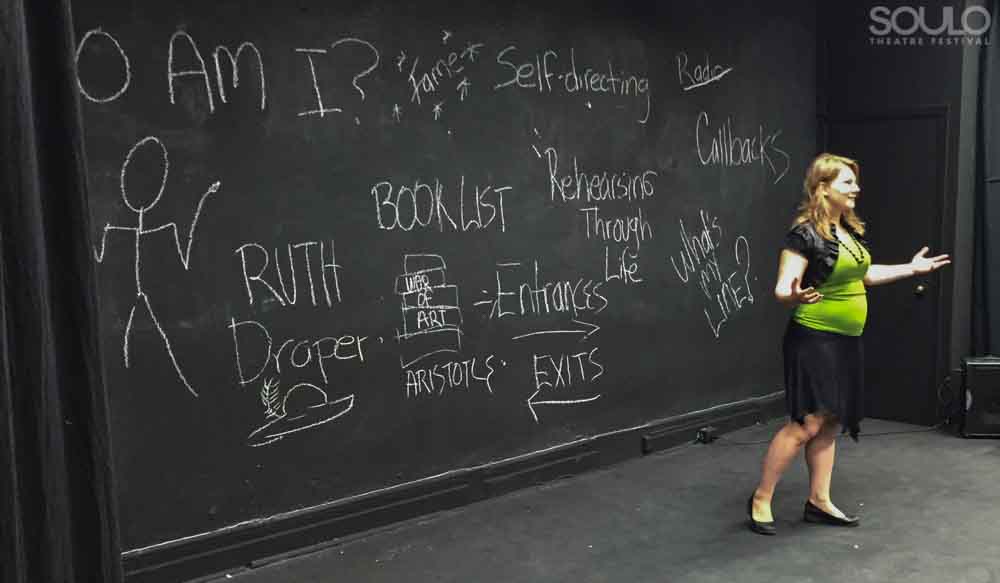 O AM I?
Fame
Self-directing
Radio
Callbacks
Rehearsing
Through
Life
What's
my
LINE?
BOOKLIST
RUTH
Draper
WAR
OF
ART
ARISTOTLE
=Entrances
EXITS
SOULO
THEATRE FESTIVAL